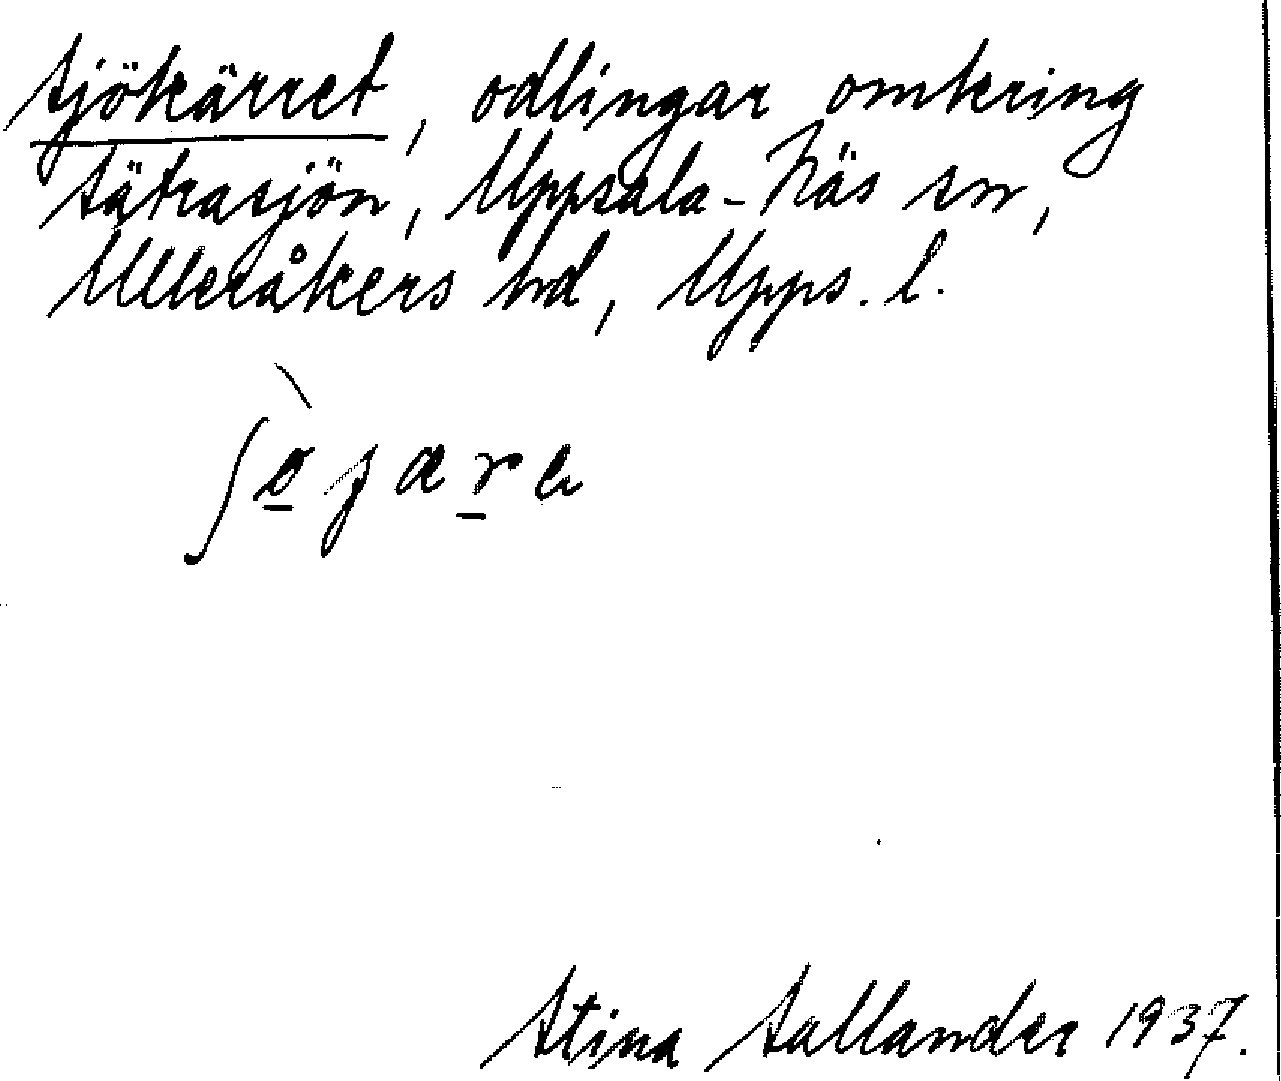 Sjökärret, odlingar omkring
Sätrasjön, Uppsala-Näs sn,
Ulleråkers hd, Upps. l.
Stina Sallander 1937.